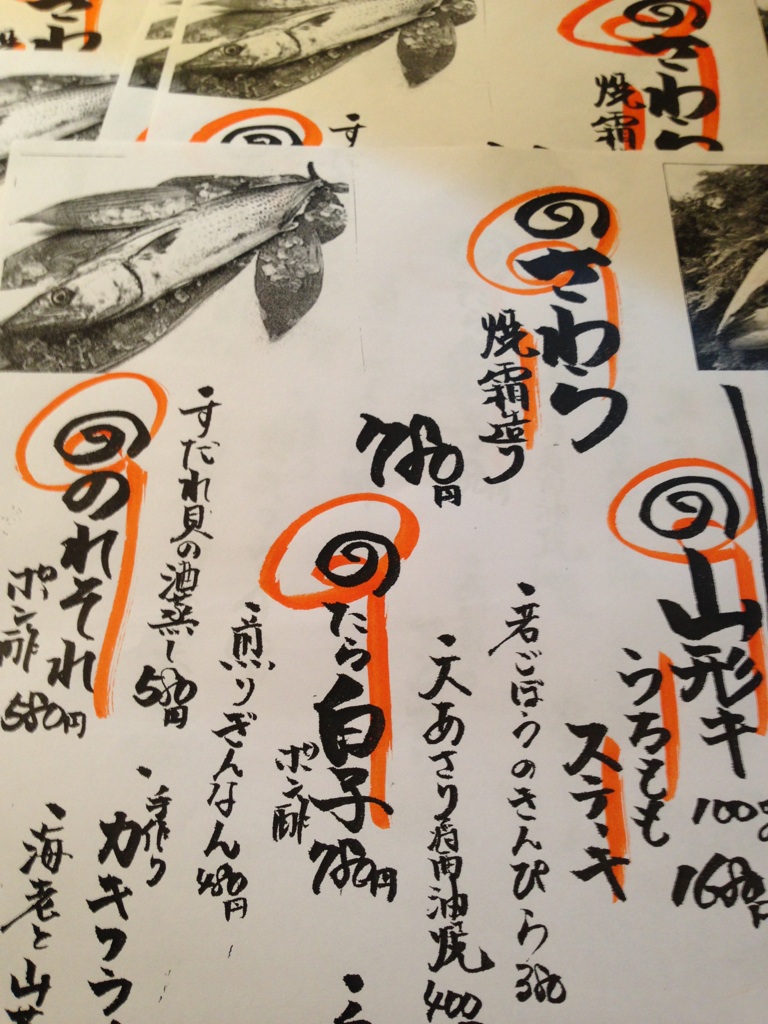 のさわら
焼霜造り
780円
の山形牛
うちもも
ステーキ
100g
1680円
・若ごぼうのきんぴら 380
・大あさり醤油焼 400
のたら白子
ポン酢
780円
・煎りぎんなん 480円
・すだれ貝の酒蒸し 580円
ののれそれ
ポン酢
580円
・手作り
カキフラ
・海老と山
のさわら
焼霜
す